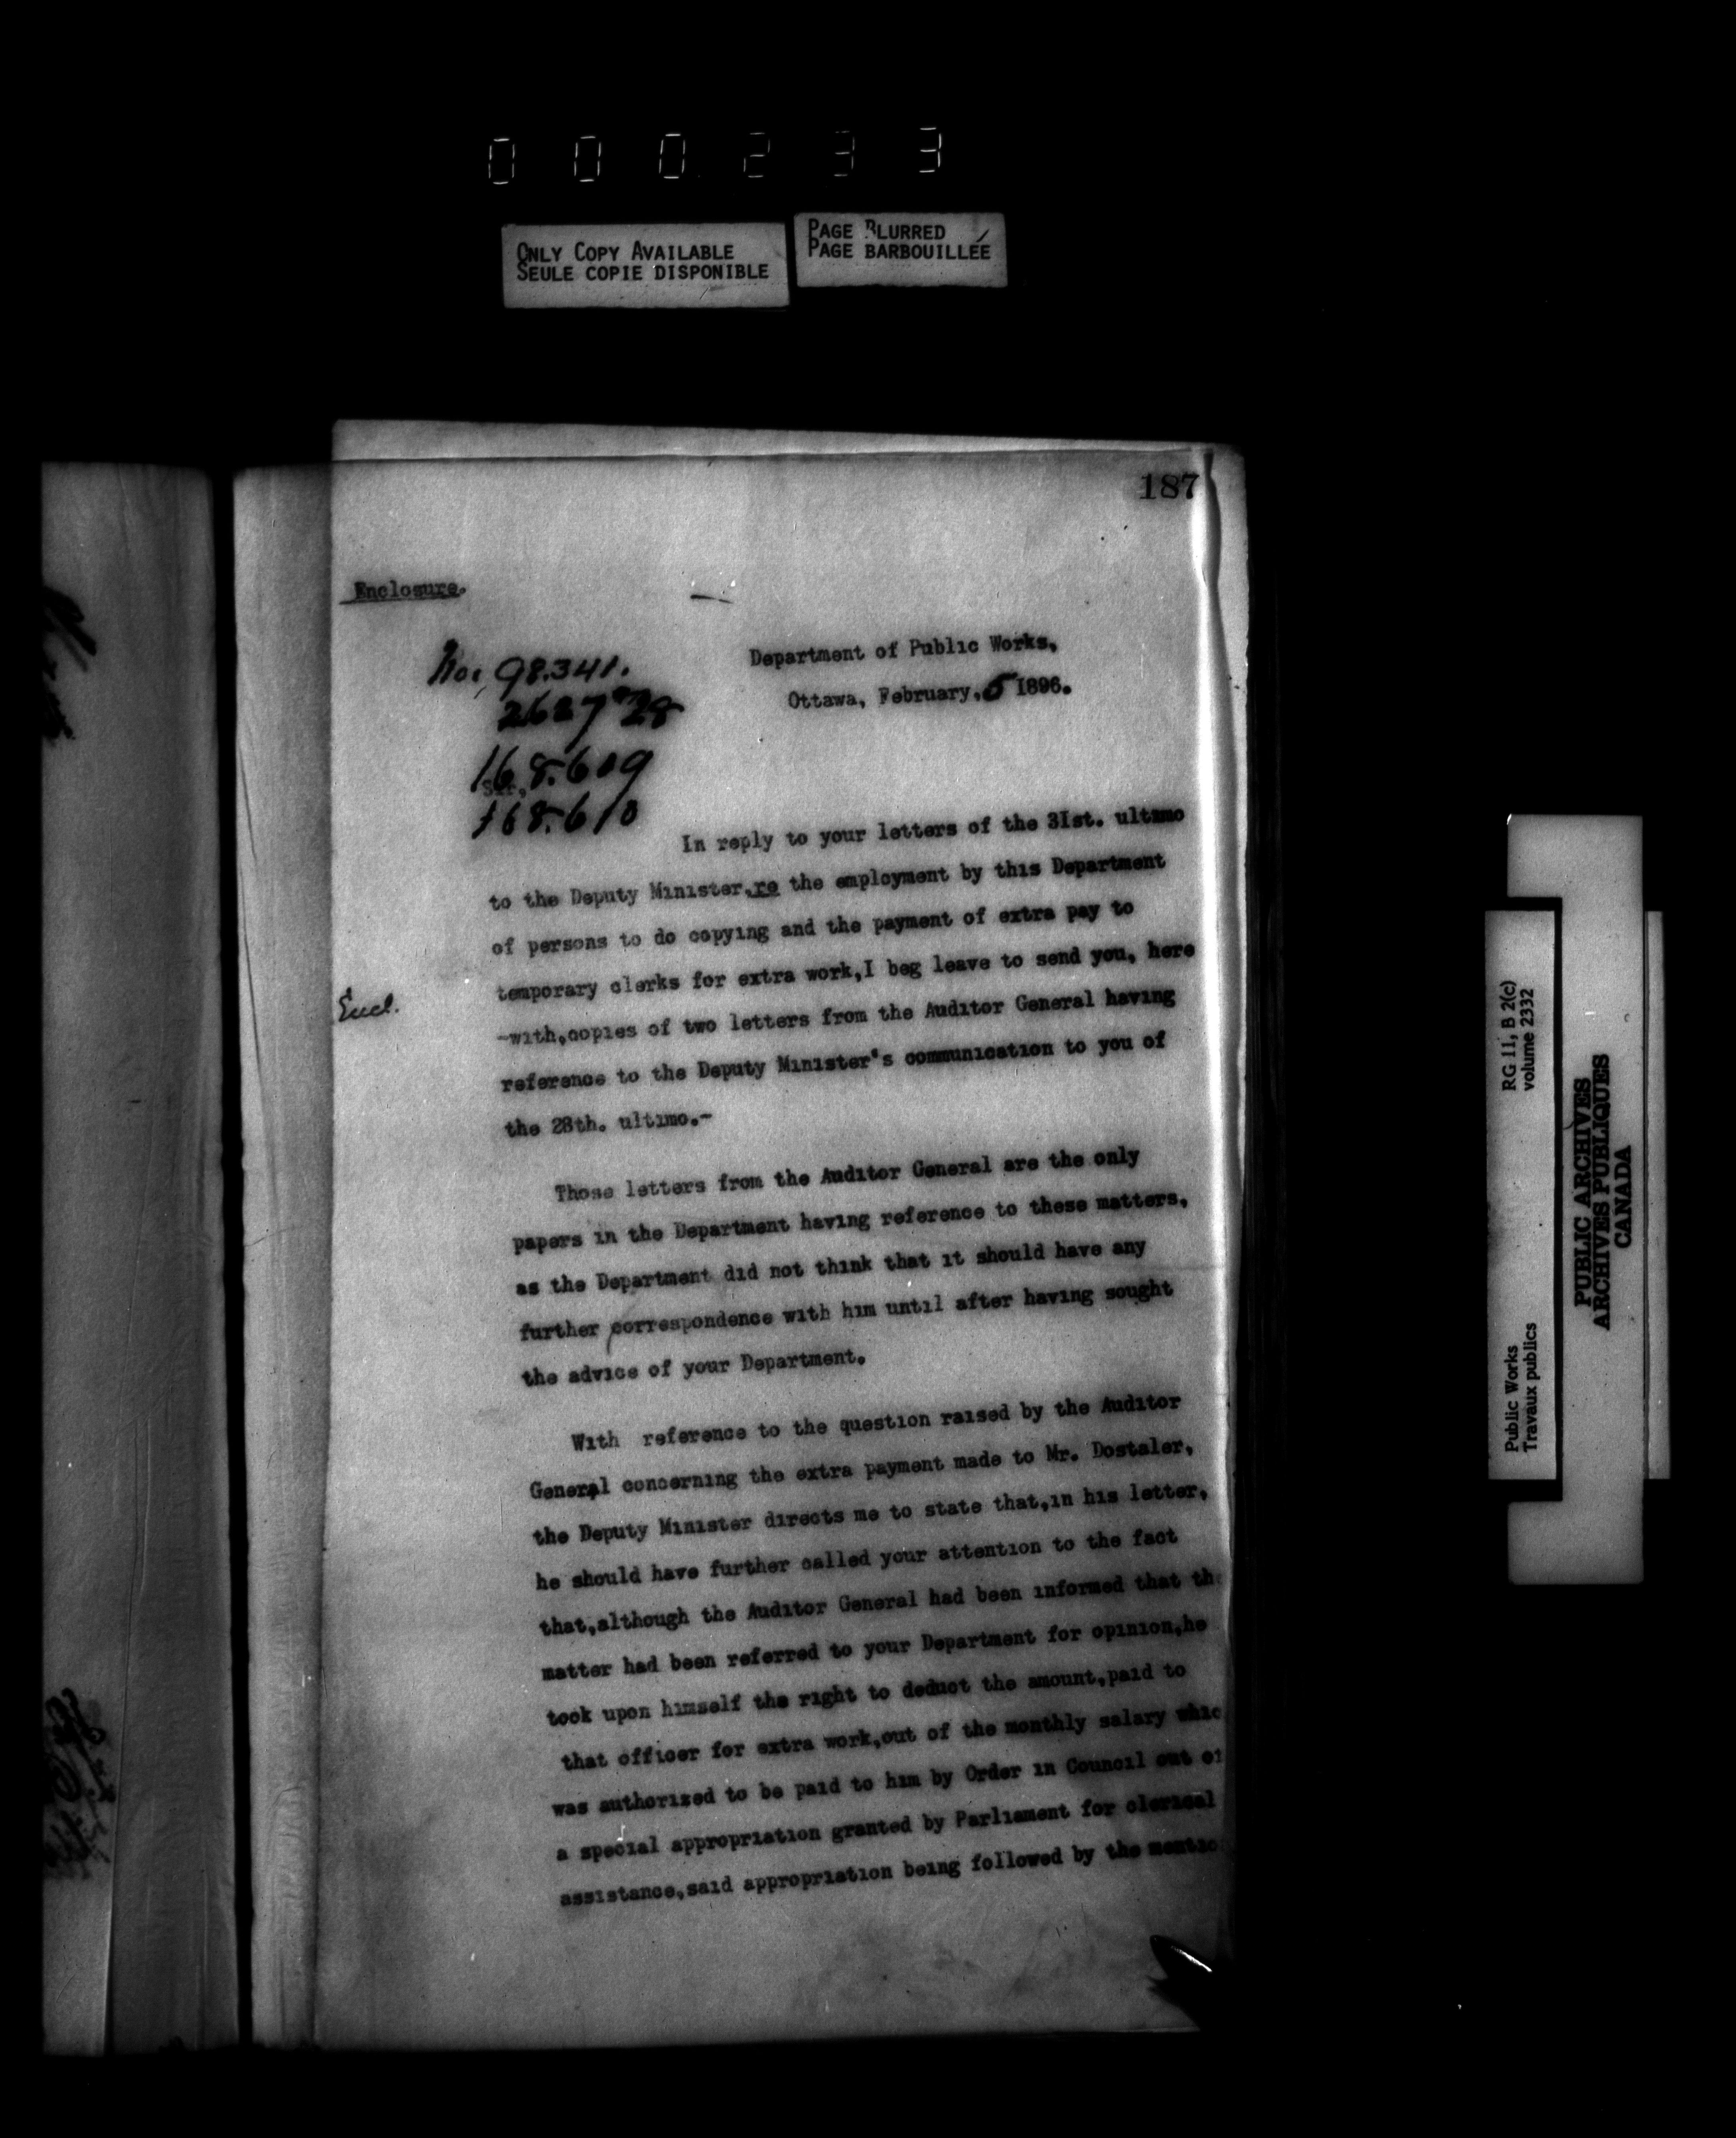 0 0 0 2 3 3
ONLY COPY AVAILABLE
SEULE COPIE DISPONIBLE
PAGE BLURRED
PAGE BARBOUILLÉE
187
Enclosure.
No. 98.341.
Department of Public Works,
Ottawa, February, 5 1896.
2627 28
168.609
Sir,
168.610
In reply to your letters of the 3Ist. ultimo
to the Deputy Minister, re the employment by this Department
of persons to do copying and the payment of extra pay to
temporary clerks for extra work, I beg leave to send you, here
Encl.
-with, copies of two letters from the Auditor General having
reference to the Deputy Minister's communication to you of
the 28th. ultimo.-
Those letters from the Auditor General are the only
papers in the Department having reference to these matters,
as the Department did not think that it should have any
further correspondence with him until after having sought
the advice of your Department.
With reference to the question raised by the Auditor
General concerning the extra payment made to Mr. Dostaler,
the Deputy Minister directs me to state that, in his letter,
he should have further called your attention to the fact
that, although the Auditor General had been informed that the
matter had been referred to your Department for opinion, he
took upon himself the right to deduct the amount, paid to
that officer for extra work, out of the monthly salary whic
was authorized to be paid to him by Order in Council out of
a special appropriation granted by Parliament for clerical
assistance, said appropriation being followed by the mentio
Public Works
Travaux publics
RG 11, B 2(c)
volume 2332
PUBLIC ARCHIVES
ARCHIVES PUBLIQUES
CANADA